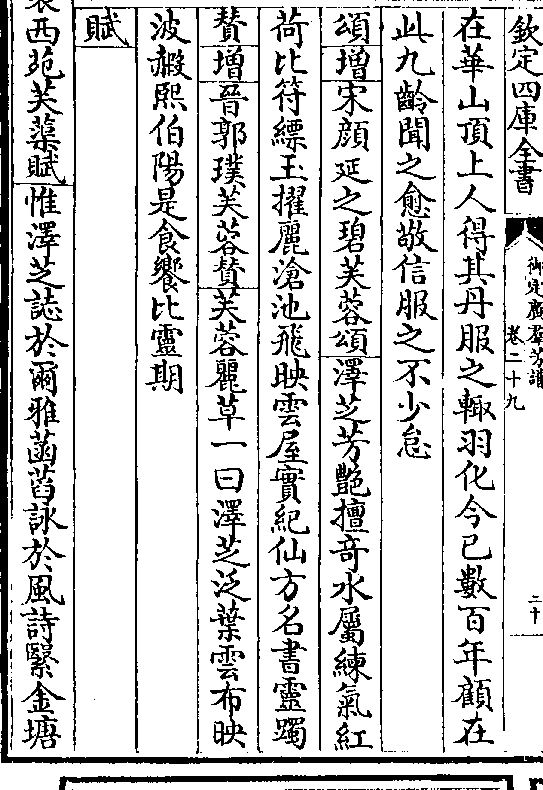 欽定四庫全書
御定廣羣芳譜
卷二十九
二十
在華山頂上人得其丹服之輙羽化今已數百年顧在
此九齡聞之愈敬信服之不少怠
頌增宋顔延之碧芙蓉頌澤芝芳艷擅竒水屬練氣紅
荷比符縹玉擢麗滄池飛映雲屋實紀仙方名書靈躅
賛增晉郭璞芙蓉賛芙蓉麗草一曰澤芝泛葉雲布映
波赧熙伯陽是食饗比靈期
賦
西苑芙蕖賦惟澤芝誌於爾雅菡萏詠於風詩繄金塘